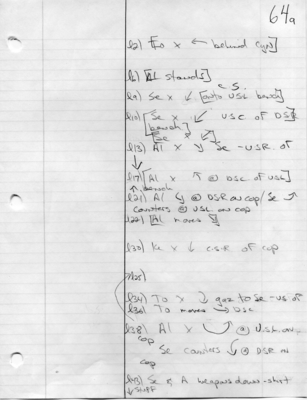 64a
l2) Eo x ← behind Cyn]
l6) [Al stands]
l9) Se x ↙ [onto USL bench]
l10) [Se x ↙ USC of DS
bench]
[Se x ↙]
l13) Al x Se - USR of
↓
l17) [Al x ↑ @ DSC of USL]
↑ bench
l21) Al @ DSR on cop / Se ↗
counters @ USL on cop
l22) [Al moves]
l30) Ke x ↓ CSR of cop
l34) To x ↓ gaz to Se - US of
l36) To moves → DSC
l38) Al x @ USL on
cop
Se counters @ DSR on
cop
l43) Se & A weapons down - shirt
↓ stuff